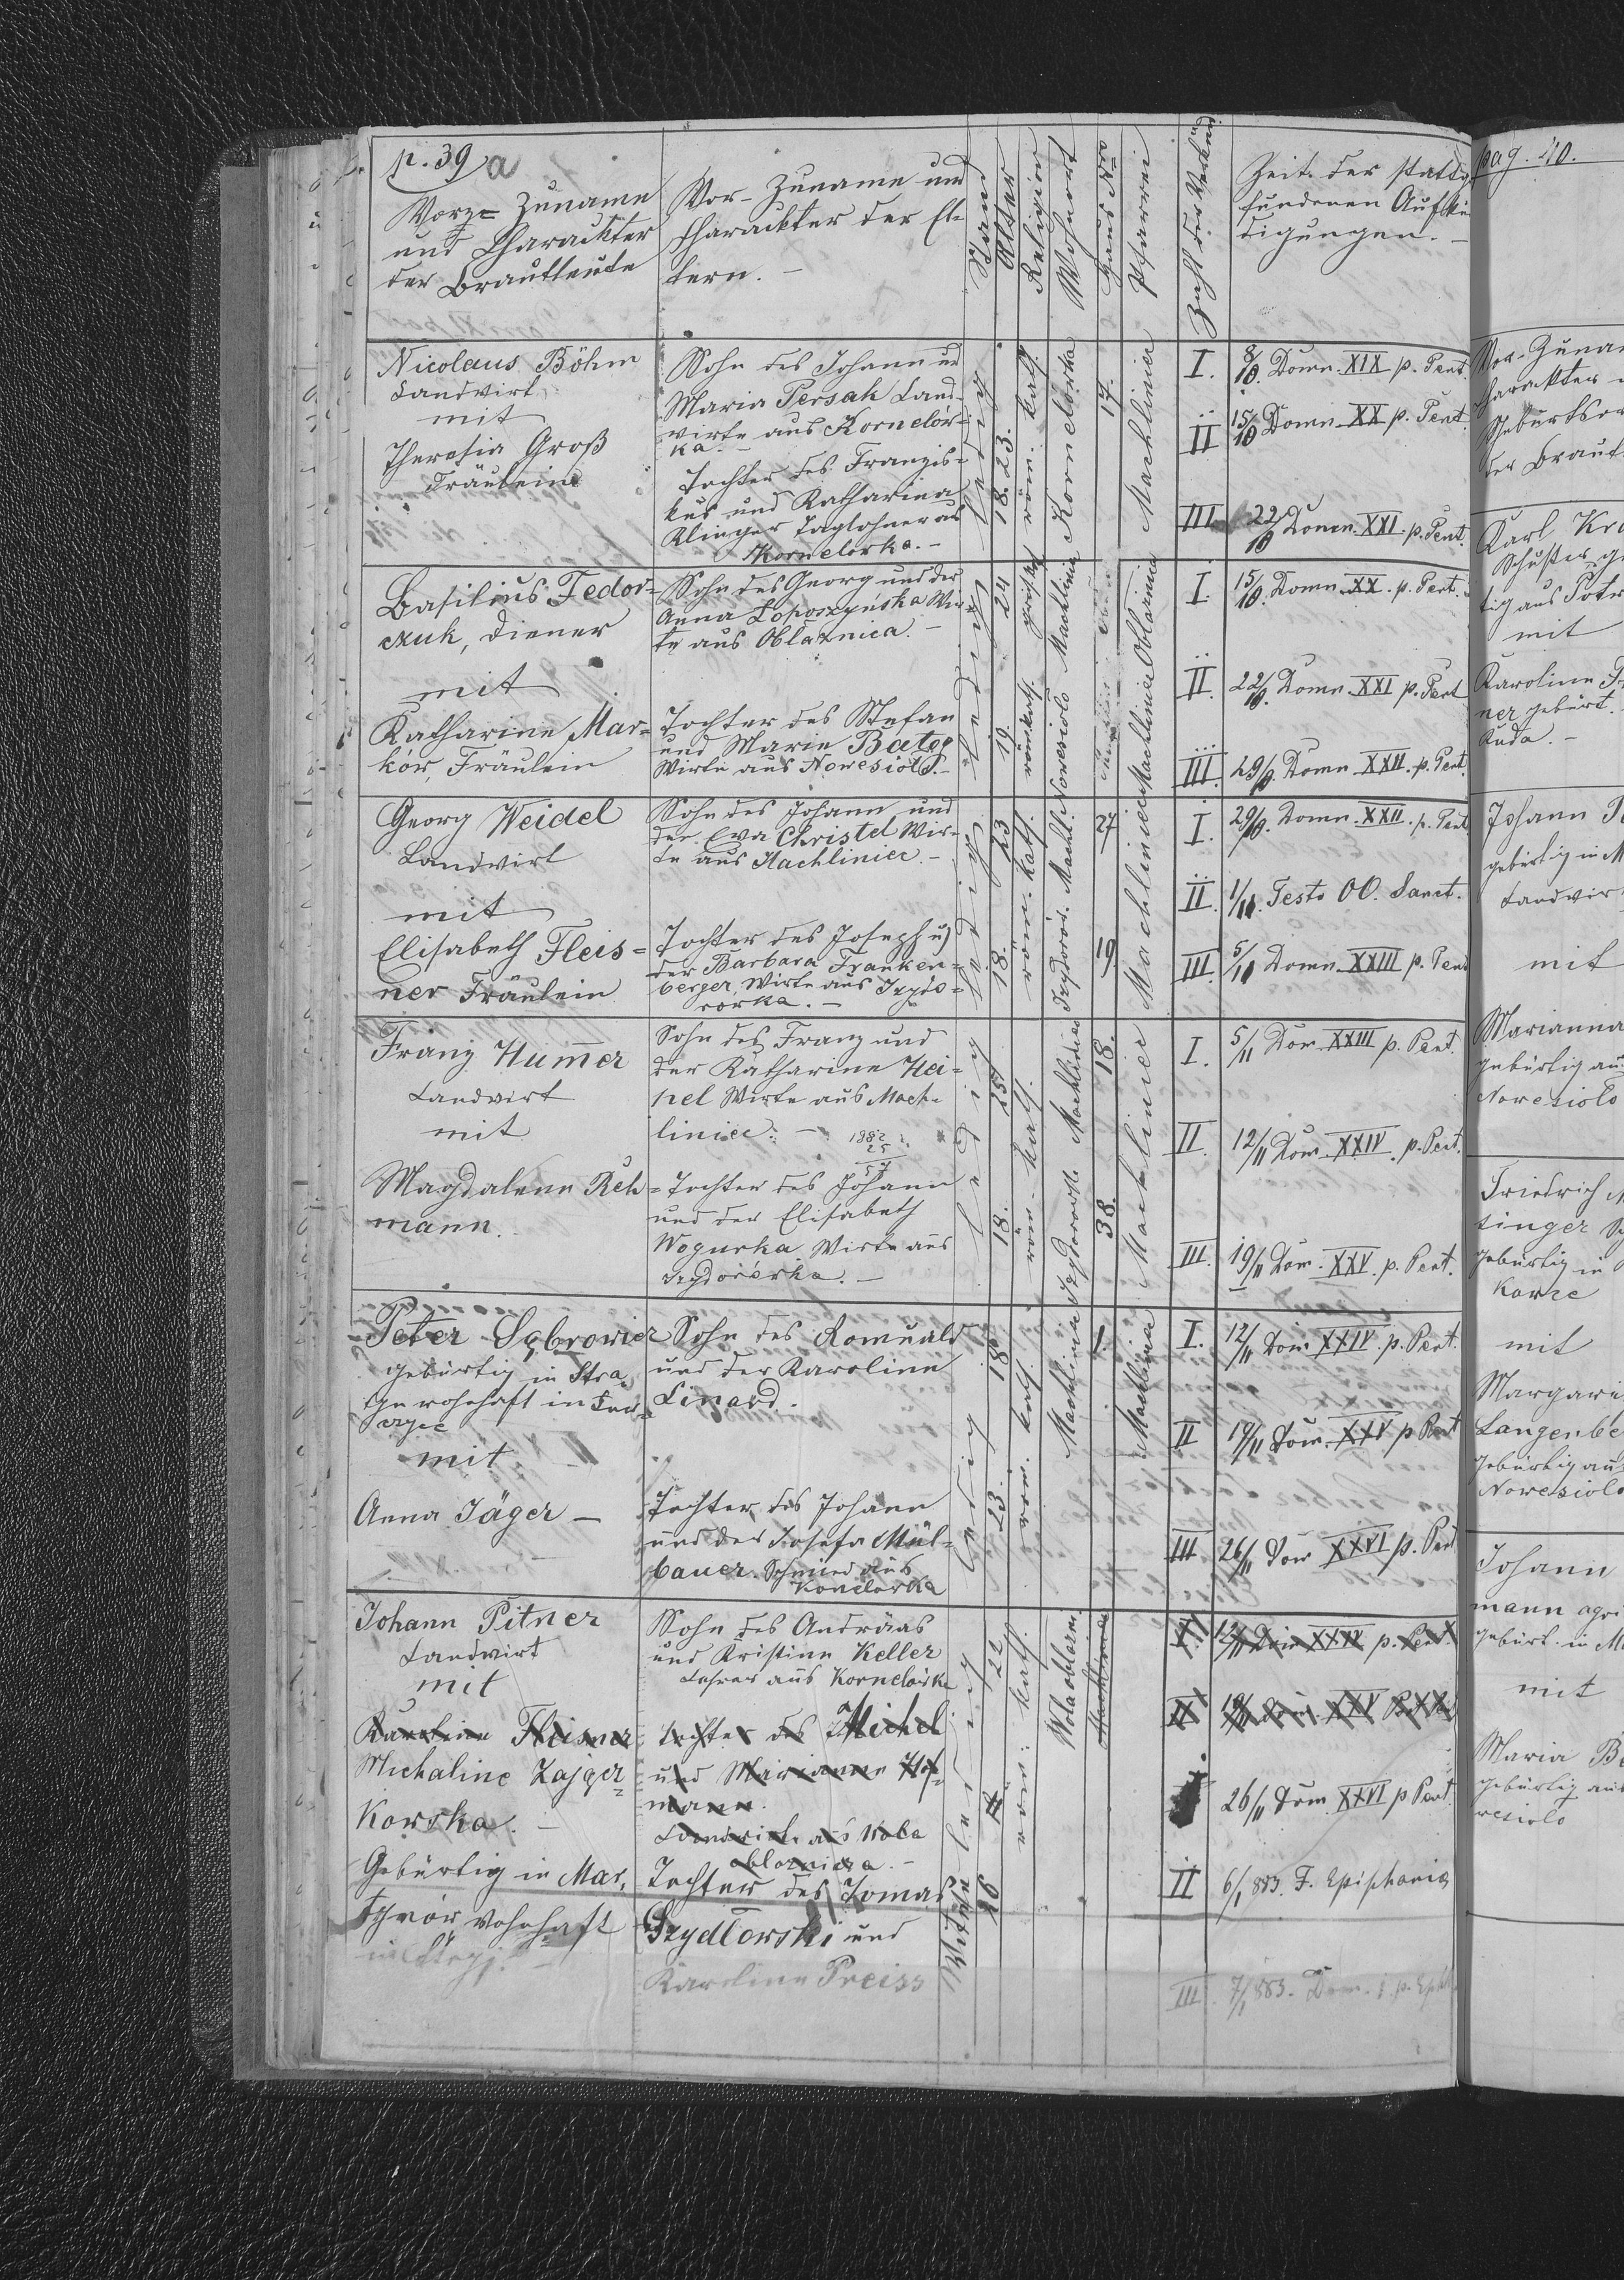 p. 39 a
Vor- Zuname
und Charackter
der Brautleute
Vor- Zuname und
Charackter der El-
tern. -
Stand
Alter
Religion
Wohnort
Haus Nro
Pfarrei
Zahl der Verkünd
Zeit der stattg
fundenen Aufkün
digungen. -
Nicolaus Böhm
Landwirt
mit
Theresia Groß
Fräulein
Sohn des Johann und
Maria Persak Land-
wirte aus Kornelów-
ka. -
Tochter des Franzis-
kus und Katharina
Klinger Taglohner aus
Kornelowka. -
ledig
18. 23.
röm. kath.
Kornelówka
17.
Machliniec
I. 8/10. Domn. XIX p. Pent.
II 15/10 Domn. XX p. Pent.
III 22/10 Domn. XXI. p. Pent.
Basilius Fedor-
czuk, Diener
mit
Katharine Mar-
ków, Fräulein
Sohn des Georg und der
Anna Łoposzyńska Wir-
te aus Obłaznica. -
Tochter des Stefan
und Marie Batog
Wirte aus Nowesioło. -
ledig
24
19.
röm. kath.
Nowesioło Machlinie
Machliniec Obłaznica
I. 15/10. Domn. XX. p. Pent.
II. 22/10. Domn. XXI p. Pent
III 29/10. Domn XXII. p. Pent.
Georg Weidel
Landwirt
mit
Elisabeth Fleis-
ner Fräulein
Sohn des Johann und
der Eva Christel Wir-
te aus Machliniec. -
Tochter des Joseph u
der Barbara Franken-
berger, Wirte aus Izydo-
rowka. -
ledig
23
18.
röm. kath.
Izydorów. Machl.
27
19
Machliniec
I. 29/10. Domn. XXII. p. Pent
II. 1/11. Festo OO. Sanct.
III 5/11 Domn. XXIII p. Pent
Franz Hum̅er
Landwirt
mit
Magdalena Reh-
mann.
Sohn des Franz und
der Katharine Hei-
nel Wirte aus Mach-
liniec. -
1882
25
57
Tochter des Johann
und der Elisabeth
Wogurka Wirte aus
Izydorówka. -
ledig
25
18.
röm. kath.
Izydorowk. Machliniec
18.
38.
Machliniec
I. 5/11 Dom XXIII p. Pent.
II. 12/11 Dom. XXIV. p. Pent.
III. 19/11 Dom. XXV. p. Pent.
Peter Sąbrowicz
gebürtig in Stra
mit
Anna Jäger -
Sohn des Romuald
und der Karolina
Linard.
Tochter des Johann
und der Josefa Mül-
bauer. Schmied aus
Konelowka
ledig
18
23.
röm. kath.
Machlinie
1.
Machliniec
I. 12/11 Dom XXIV. p. Pent.
II 19/11 Dom. XXV p Pent
III 26/11 Dom XXVI p. Pent
Johann Pitner
Landwirt
mit
Karoline Fleisner
Michaline Zajger-
kowska. -
Gebürtig in Mar-
wohnhaft
Sohn des Andräas
und Kristine Keller
Lehrer aus Kornelówka
Tochter des Michel
und Marianne Hof-
mann.
Landwirte aus Wola
oblaznicka. -
Tochter des Tomas
Szydłowski und
Karoline Preiss
ledig
Witwe
22
26
röm. kath.
Wolaoblazn.
Machliniec
I. 12/11 Dom XXIV p. Pent.
II 19/11 Dom. XXV P. Pent
I 26/11 Dom XXVI p Pent.
II 6/1 883. F. Epiphania
III 7/1 883. Dom. 1. p. Eph
pag. 40.
Vor- Zuna
Charackter
Geburtsor
der Braut
Karl Kr
Schuster g
tig aus
mit
Karoline
ner gebürt.
Ruda. -
Johann
gebürtig in M
Landwir
mit
Marianna
gebürtig au
Nowesioło
Friedrich
singer
gebürtig in
Kowce
mit
Margari
Langenbe
gebürtig au
Nowesioło
Johann
mann agri
gebürt. in M
mit
Maria B
gebürtig aus
wesiolo